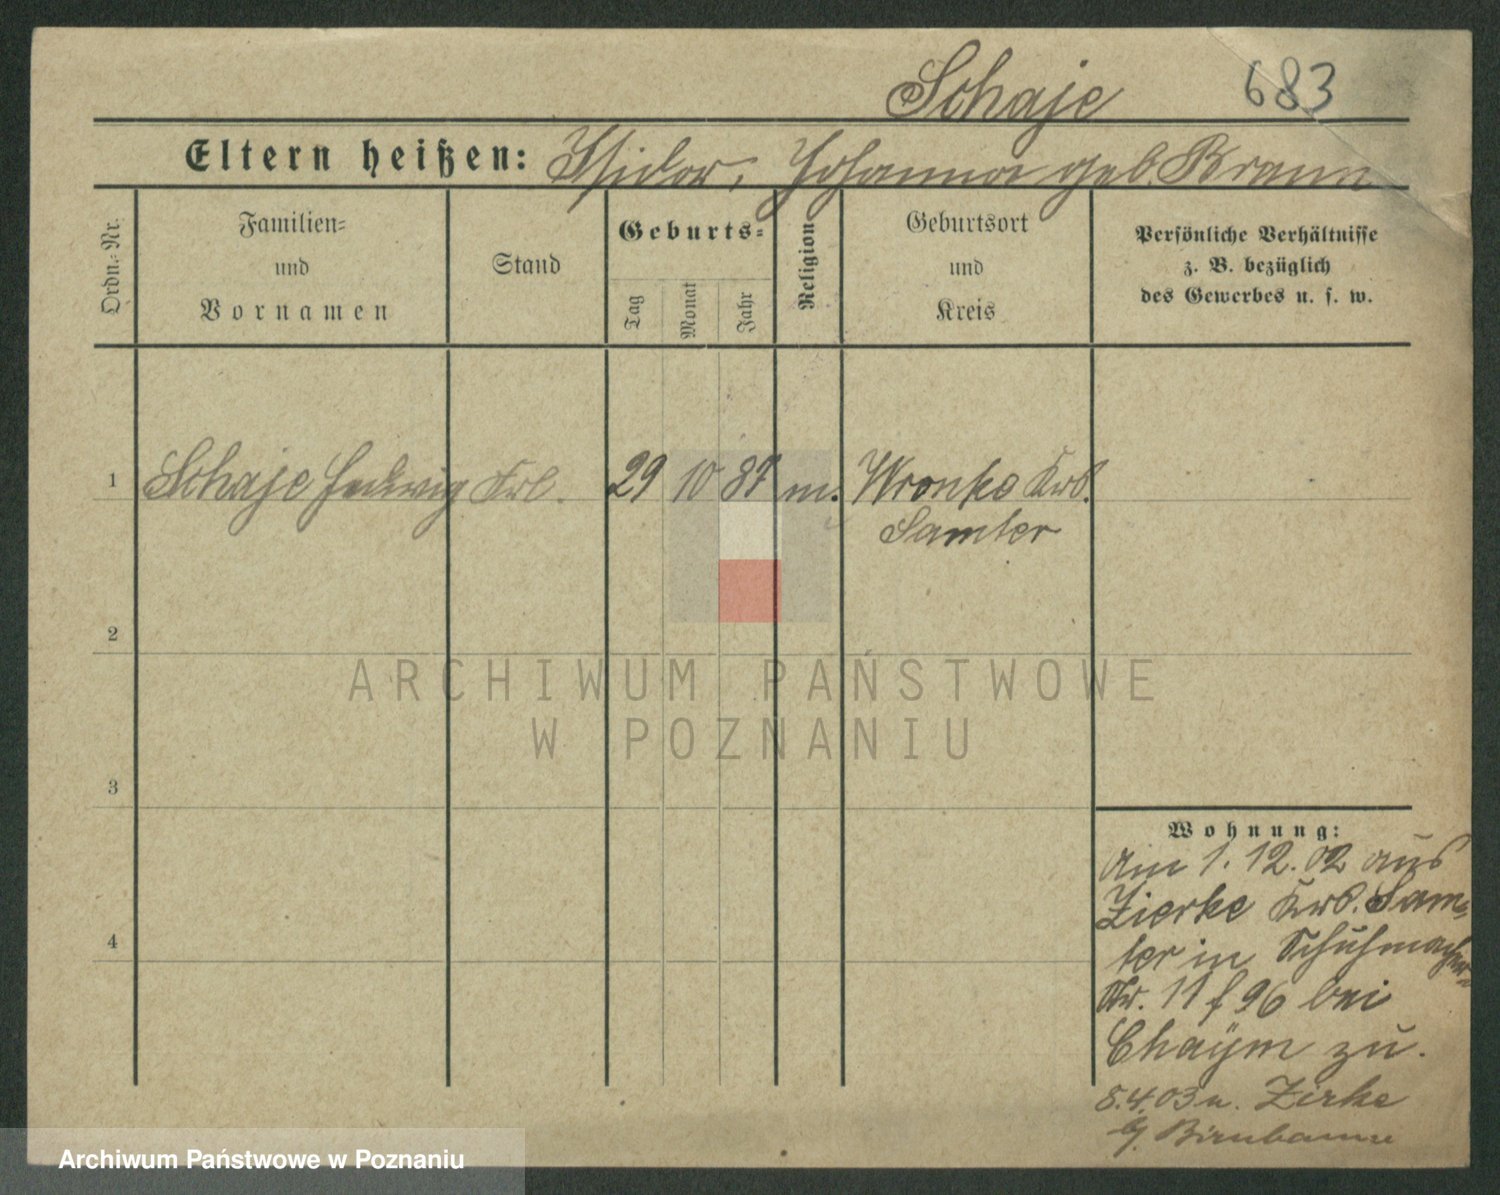 Schaje 683
Eltern heißen: Isidor, Johanna geb. Braun
Ordn.-Nr.
Familien-
und
Vornamen
Stand
Geburts-
Tag
Monat
Jahr
Religion
Geburtsort
und
Kreis
Persönliche Verhältnisse
z. B. bezüglich
des Gewerbes u. s. w.
1 Schaje Hedwig Frl. 29 10 87 m. Wronke Krs.
Samter
2
3
4
ARCHIWUM PAŃSTWOWE
W POZNANIU
Wohnung:
am 1.12.02 aus
Zierke Krs. Sam-
ter in Schuhmacher-
Str. 11 f 96 bei
Chaÿm zu.
8.4.03 n. Zirke
Birnbaum
Archiwum Państwowe w Poznaniu